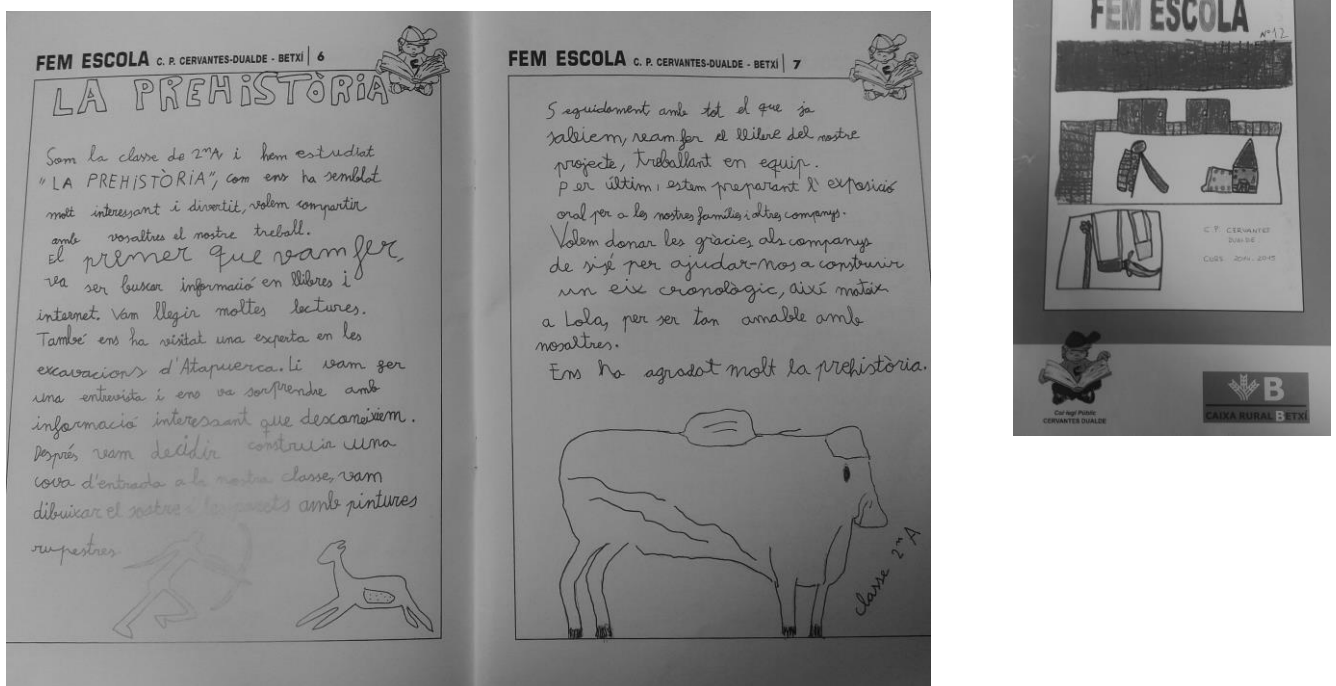 FEM ESCOLA C. P. CERVANTES-DUALDE - BETXÍ 6
LA PREHiSTÒRiA
Som la classe de 2ⁿA i hem estudiat
"LA PREHISTÒRIA", com ens ha semblat
molt interessant i divertit, volem compartir
amb vosaltres el nostre treball.
El primer que vam fer,
va ser buscar informació en llibres i
internet. Vam llegir moltes lectures.
També ens ha visitat una experta en les
excavacions d'Atapuerca. Li vam fer
una entrevista i ens va sorprendre amb
informació interessant que desconeixíem.
Després vam decidir construir una
cova d'entrada a la nostra classe, vam
dibuixar el sostre i les parets amb pintures
rupestres
FEM ESCOLA C. P. CERVANTES-DUALDE - BETXÍ 7
Seguidament amb tot el que ja
sabiem, vam fer el llibre del nostre
projecte, treballant en equip.
Per últim, estem preparant l'exposició
oral per a les nostres famílies i altres companys.
Volem donar les gràcies als companys
de sisé per ajudar-nos a construir
un eix cronològic, així mateix
a Lola, per ser tan amable amb
nosaltres.
Ens ha agradat molt la prehistòria.
classe 2ⁿ A
FEM ESCOLA
Nº 12
C.P. CERVANTES
DUALDE
CURS 2014-2015
Col·legi Públic
CERVANTES DUALDE
B
CAIXA RURAL BETXÍ